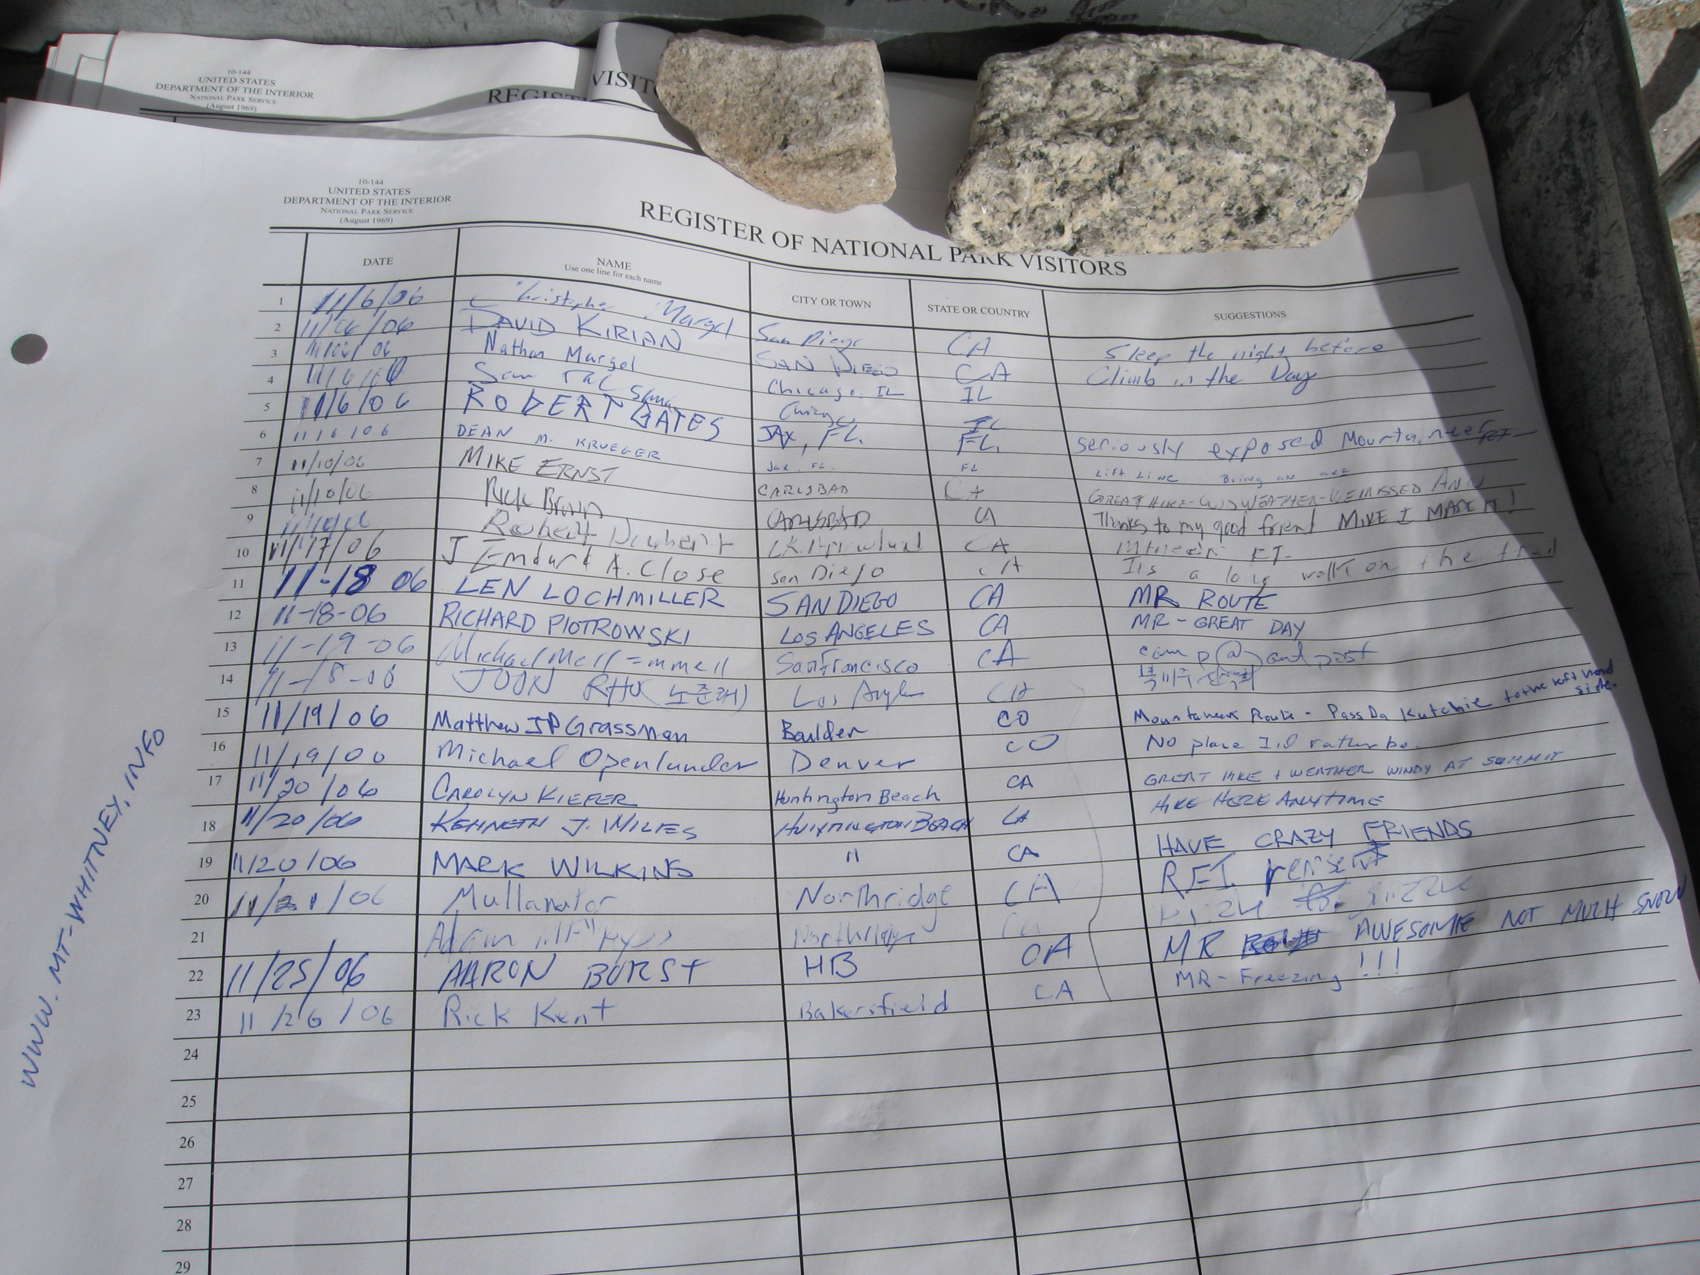 10-144
UNITED STATES
DEPARTMENT OF THE INTERIOR
NATIONAL PARK SERVICE
(August 1969)
REGIS
VISIT
10-144
UNITED STATES
DEPARTMENT OF THE INTERIOR
NATIONAL PARK SERVICE
(August 1969)
REGISTER OF NATIONAL PARK VISITORS
DATE NAME CITY OR TOWN STATE OR COUNTRY SUGGESTIONS
Use one line for each name
1 11/6/06 Christopher Margel San Diego CA Sleep the night before
2 11/06/06 DAVID KIRIAN SAN DIEGO CA Climb in the Day
3 Nathan Margel Chicago, IL IL
4 11/6/06 Sam Chicago IL
5 11/6/06 ROBERT GATES JAX, FL. FL. Seriously exposed
6 11/6/06 DEAN M. KRUEGER Jax, FL. FL
7 11/10/06 MIKE ERNST CARLSBAD CA GREAT HIKE
8 11/10/06 Rick Brown CARLSBAD CA Thanks to my good friend MIKE I MADE IT!
9 Robert CA
10 11/17/06 A. Close San Diego CA Its a long walk on the
11 11-18 06 LEN LOCHMILLER SAN DIEGO CA MR ROUTE
12 11-18-06 RICHARD PIOTROWSKI LOS ANGELES CA MR - GREAT DAY
13 11-19-06 Michael San Francisco CA camp @ and
14 JOON RHO (노준래) Los Angeles CA
15 11/19/06 Matthew JP Grassman Boulder CO Mountaineers Route - Pass Da Kutchie to the left hand side.
16 11/19/06 Michael Openlander Denver CO No place I'd rather be.
17 11/20/06 CAROLYN KIEFER Huntington Beach CA GREAT HIKE + WEATHER WINDY AT SUMMIT
18 11/20/06 KENNETH J. WILFES HUNTINGTON BEACH CA HIKE HERE ANYTIME
19 11/20/06 MARK WILKINS " CA HAVE CRAZY FRIENDS
20 11/21/06 Mullanator Northridge CA REI represent
21 Adam Northridge Ca
22 11/25/06 AARON BURST HB CA MR AWESOME NOT MUCH SNOW
23 11/26/06 Rick Kent Bakersfield CA MR - Freezing!!!
24
25
26
27
28
29
WWW.MT-WHITNEY.INFO